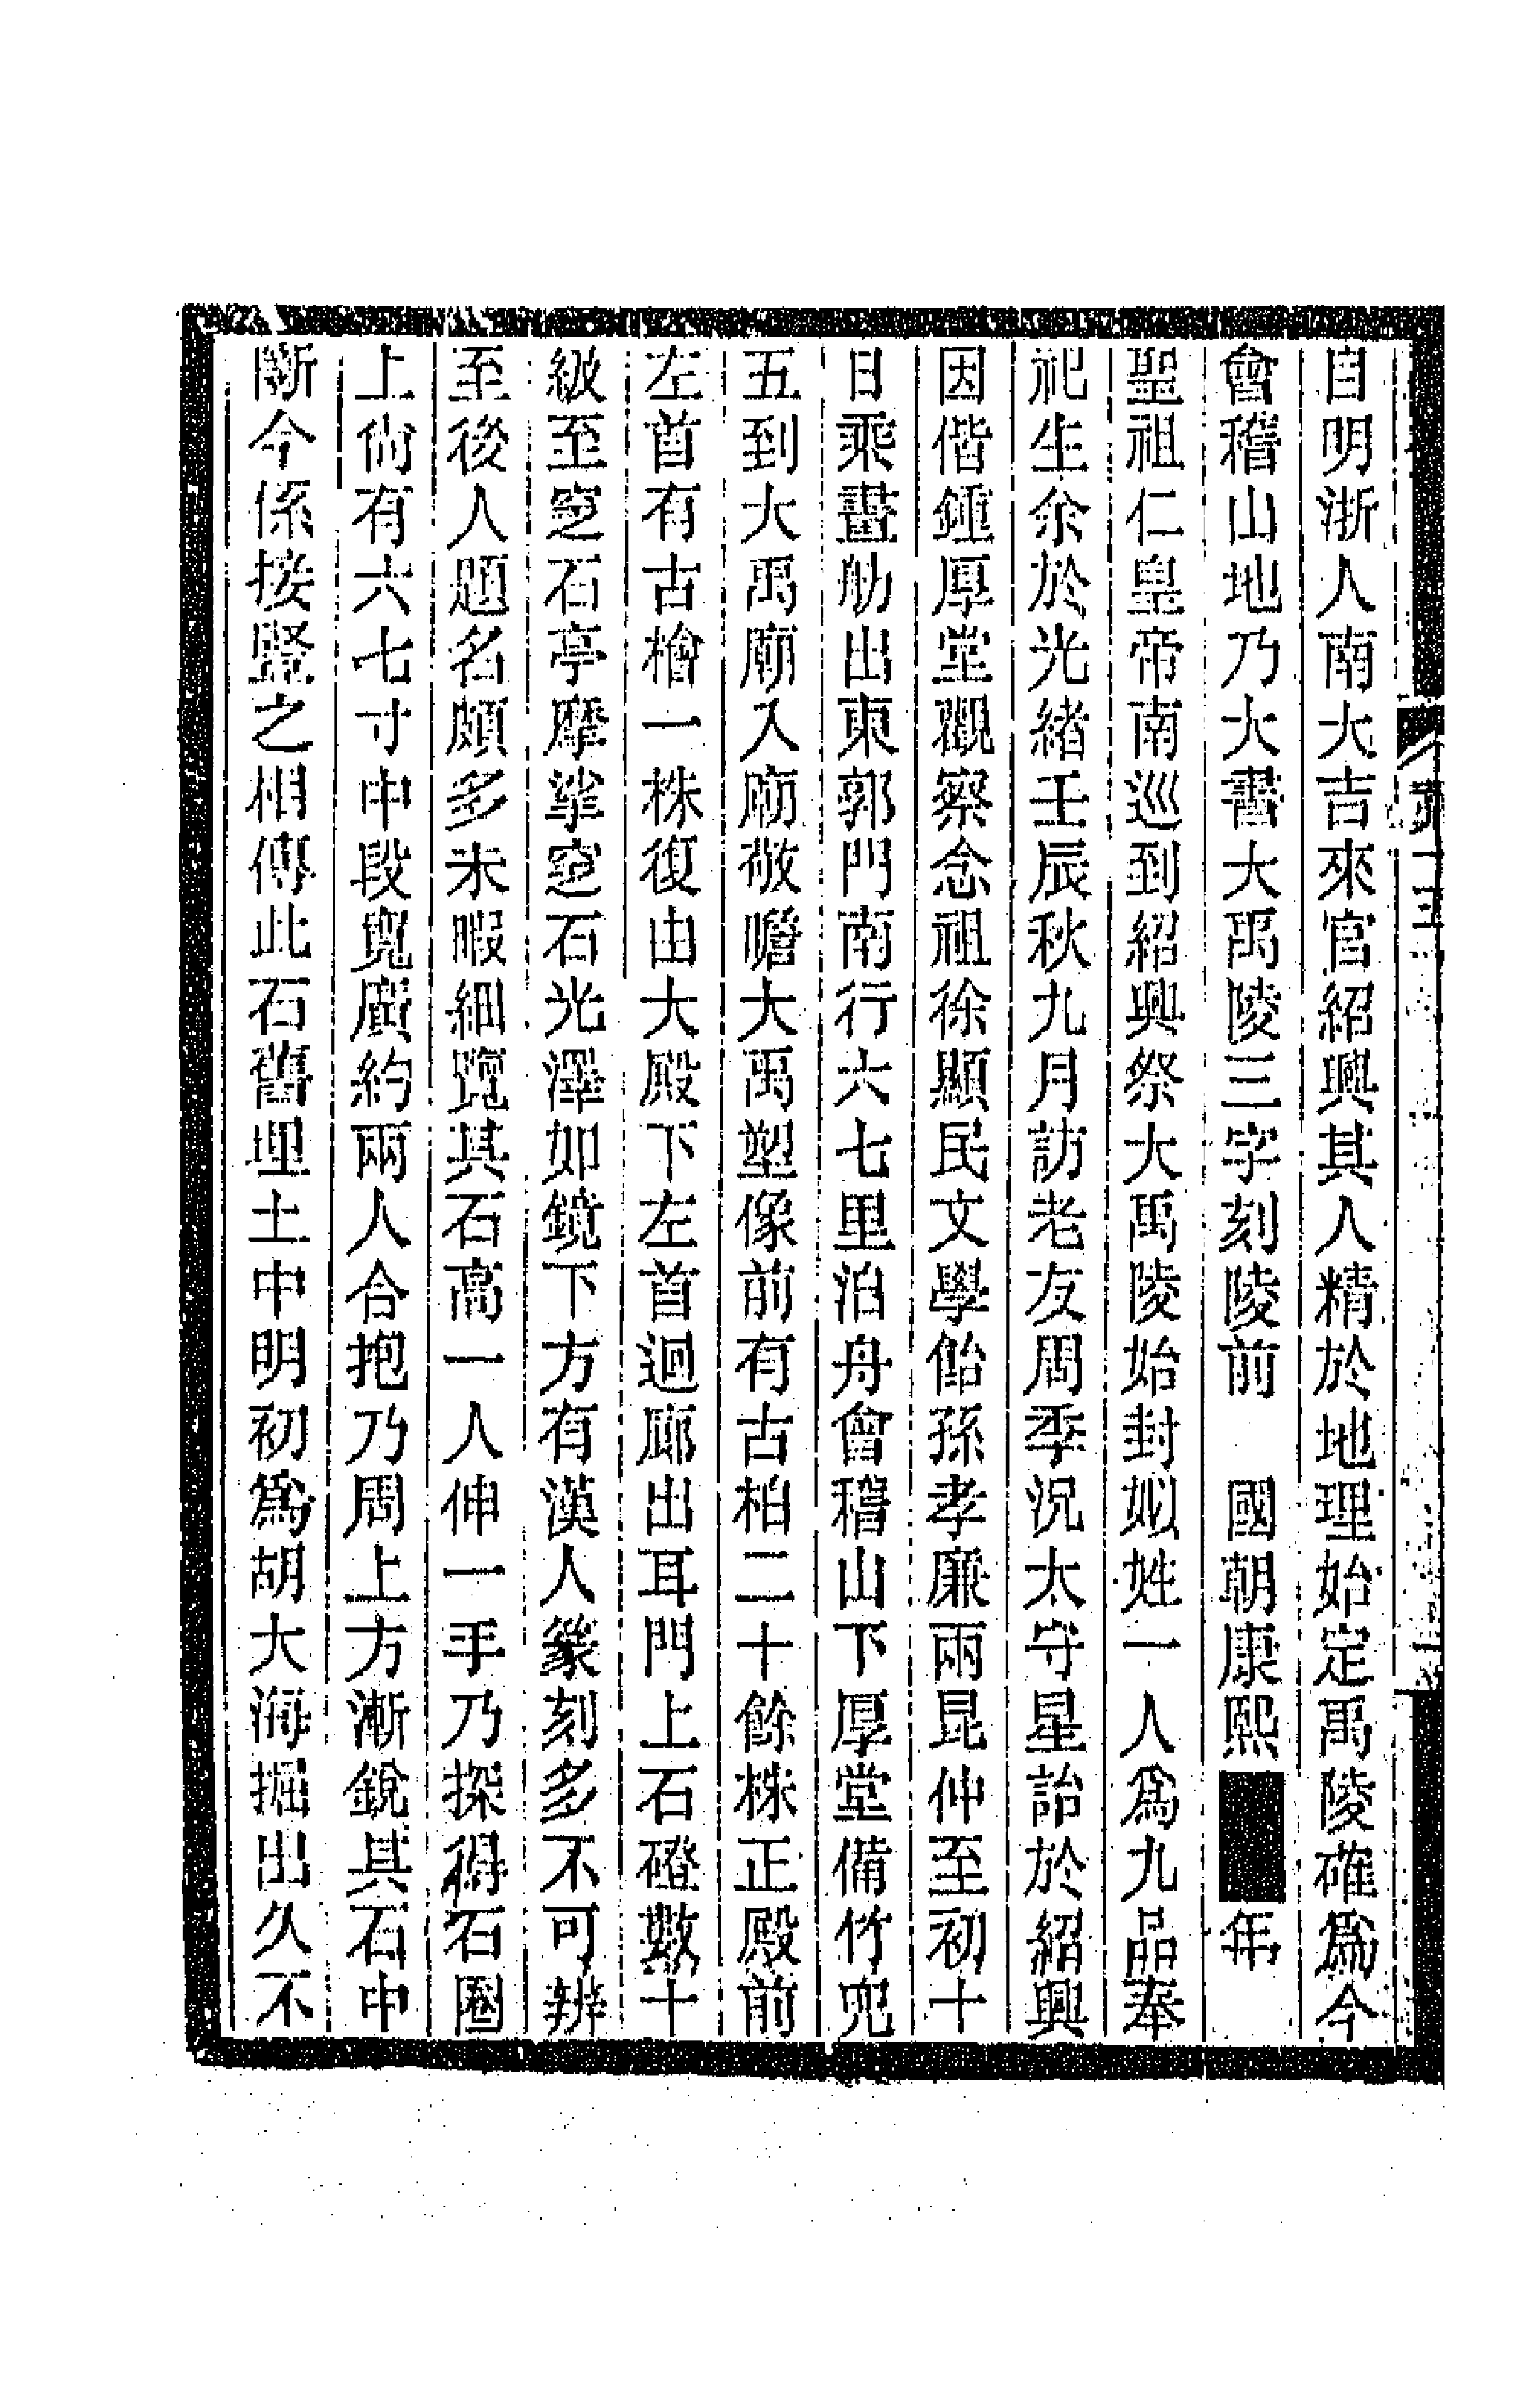 自明浙人南大吉來官紹興其人精於地理始定禹陵確爲今
會稽山地乃大書大禹陵三字刻陵前　國朝康熙■■年
聖祖仁皇帝南巡到紹興祭大禹陵始封姒姓一人爲九品奉
祀生余於光緒壬辰秋九月訪老友周季況太守星詒於紹興
因偕鍾厚堂觀察念祖徐顯民文學飴孫孝廉兩昆仲至初十
日乘畫舫出東郭門南行六七里泊舟會稽山下厚堂備竹兜
五到大禹廟入廟敬瞻大禹塑像前有古柏二十餘株正殿前
左首有古檜一株復由大殿下左首迴廊出耳門上石磴數十
級至窆石亭摩挲窆石光澤如鏡下方有漢人篆刻多不可辨
至後人題名頗多未暇細覽其石高一人伸一手乃探得石圈
上尚有六七寸中段寬廣約兩人合抱乃周上方漸銳其石中
斷今係接豎之相傳此石舊埋土中明初爲胡大海掘出久不